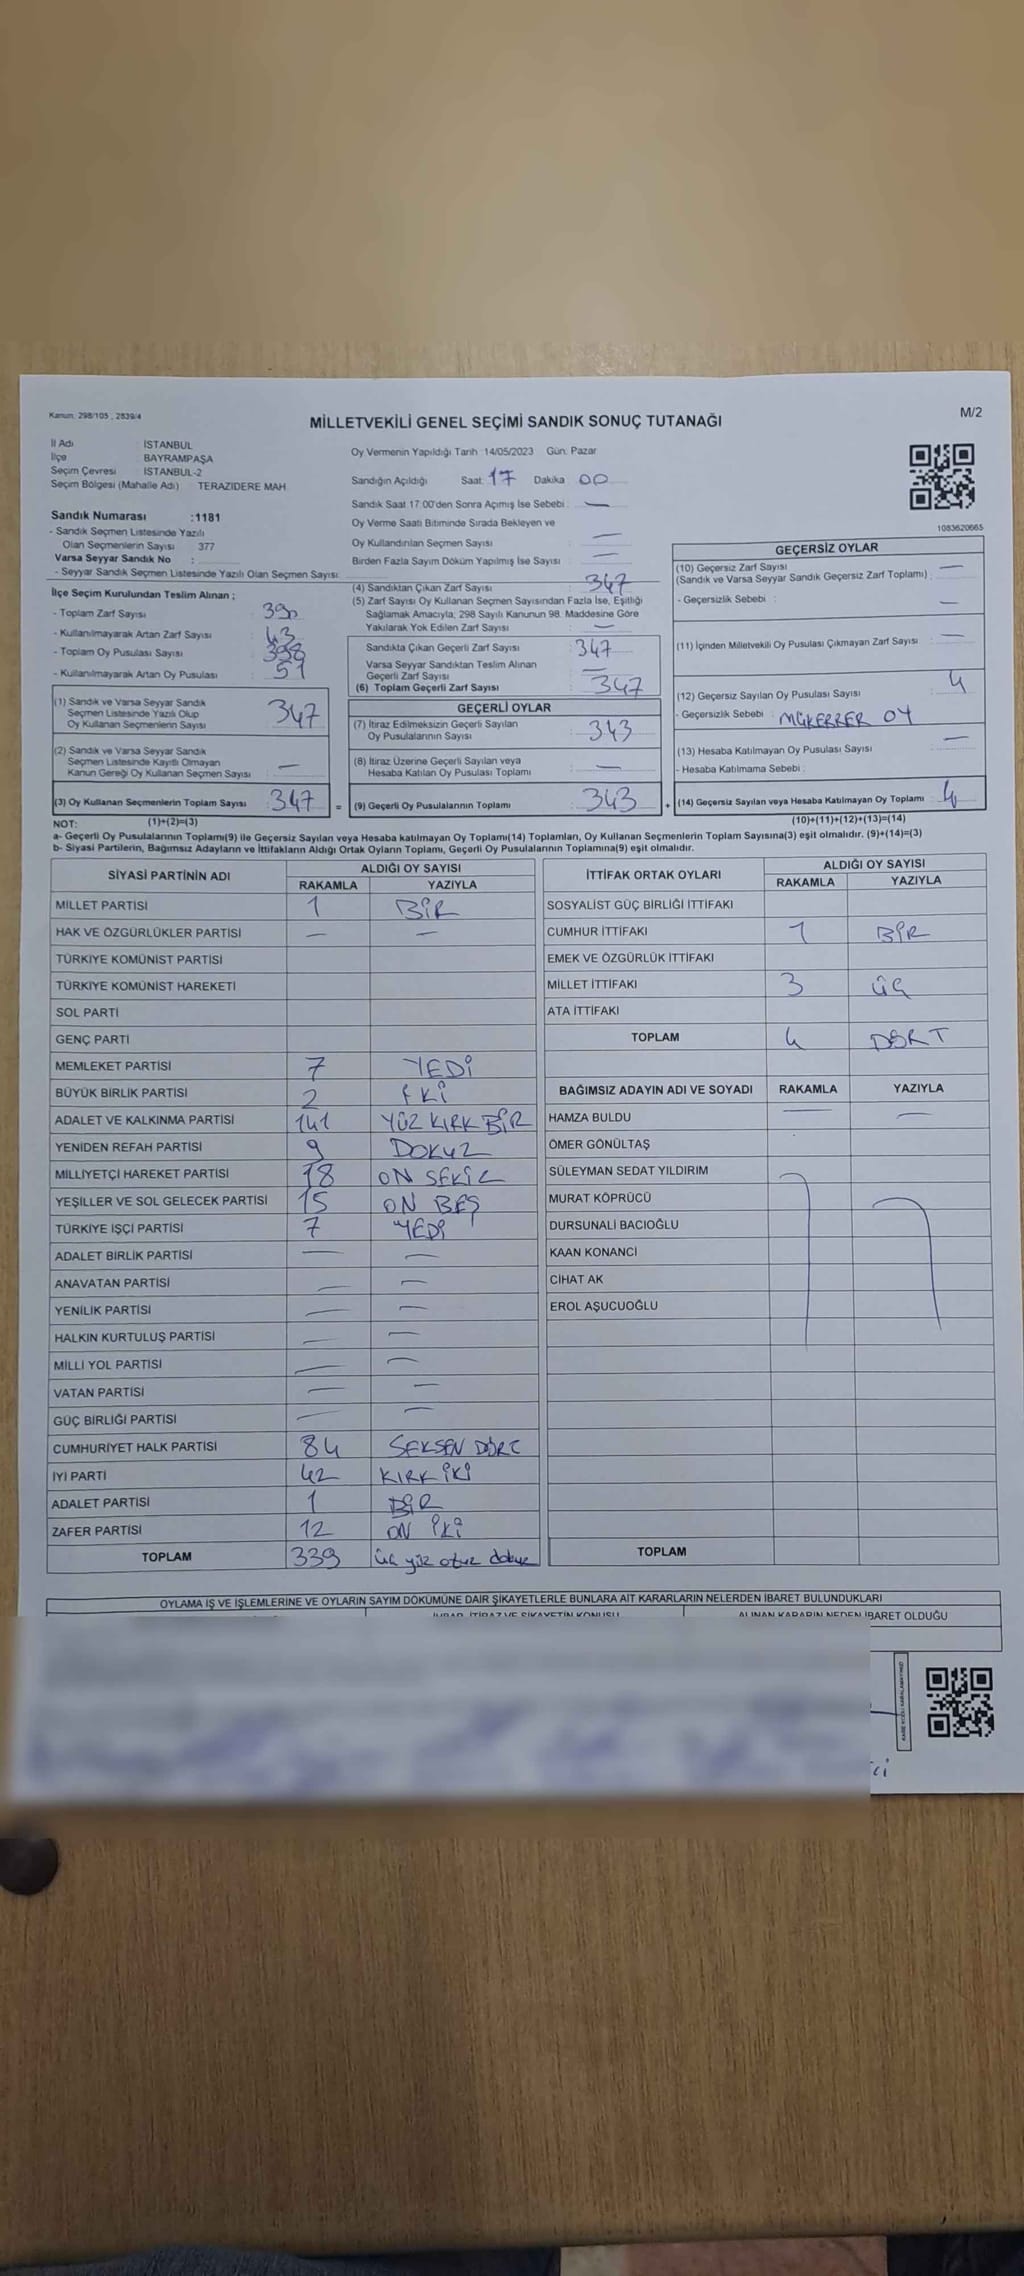 Kanun: 298/105 , 2839/4
MİLLETVEKİLİ GENEL SEÇİMİ SANDIK SONUÇ TUTANAĞI
M/2
İl Adı : İSTANBUL
İlçe : BAYRAMPAŞA
Seçim Çevresi : İSTANBUL-2
Seçim Bölgesi (Mahalle Adı) : TERAZİDERE MAH.
Sandık Numarası :1181
- Sandık Seçmen Listesinde Yazılı
Olan Seçmenlerin Sayısı : 377
Varsa Seyyar Sandık No :
- Seyyar Sandık Seçmen Listesinde Yazılı Olan Seçmen Sayısı:
İlçe Seçim Kurulundan Teslim Alınan ;
- Toplam Zarf Sayısı : 390
- Kullanılmayarak Artan Zarf Sayısı : 43
- Toplam Oy Pusulası Sayısı : 398
- Kullanılmayarak Artan Oy Pusulası : 51
(1) Sandık ve Varsa Seyyar Sandık
Seçmen Listesinde Yazılı Olup
Oy Kullanan Seçmenlerin Sayısı : 347
(2) Sandık ve Varsa Seyyar Sandık
Seçmen Listesinde Kayıtlı Olmayan
Kanun Gereği Oy Kullanan Seçmen Sayısı : —
(3) Oy Kullanan Seçmenlerin Toplam Sayısı : 347 =
Oy Vermenin Yapıldığı Tarih 14/05/2023 Gün: Pazar
Sandığın Açıldığı Saat: 17 Dakika 00
Sandık Saat 17:00'den Sonra Açımış İse Sebebi : —
Oy Verme Saati Bitiminde Sırada Bekleyen ve
Oy Kullandırılan Seçmen Sayısı : —
Birden Fazla Sayım Döküm Yapılmış İse Sayısı : —
(4) Sandıktan Çıkan Zarf Sayısı : 347
(5) Zarf Sayısı Oy Kullanan Seçmen Sayısından Fazla İse, Eşitliği
Sağlamak Amacıyla, 298 Sayılı Kanunun 98. Maddesine Göre
Yakılarak Yok Edilen Zarf Sayısı : —
Sandıkta Çıkan Geçerli Zarf Sayısı : 347
Varsa Seyyar Sandıktan Teslim Alınan
Geçerli Zarf Sayısı : —
(6) Toplam Geçerli Zarf Sayısı : 347
GEÇERLİ OYLAR
(7) İtiraz Edilmeksizin Geçerli Sayılan
Oy Pusulalarının Sayısı : 343
(8) İtiraz Üzerine Geçerli Sayılan veya
Hesaba Katılan Oy Pusulası Toplamı : —
(9) Geçerli Oy Pusulalarının Toplamı : 343 +
1083620665
GEÇERSİZ OYLAR
(10) Geçersiz Zarf Sayısı
(Sandık ve Varsa Seyyar Sandık Geçersiz Zarf Toplamı) : —
- Geçersizlik Sebebi : —
(11) İçinden Milletvekili Oy Pusulası Çıkmayan Zarf Sayısı : —
(12) Geçersiz Sayılan Oy Pusulası Sayısı : 4
- Geçersizlik Sebebi : MÜKERRER OY
(13) Hesaba Katılmayan Oy Pusulası Sayısı : —
- Hesaba Katılmama Sebebi :
(14) Geçersiz Sayılan veya Hesaba Katılmayan Oy Toplamı : 4
NOT: (1)+(2)=(3) (10)+(11)+(12)+(13)=(14)
a- Geçerli Oy Pusulalarının Toplamı(9) ile Geçersiz Sayılan veya Hesaba katılmayan Oy Toplamı(14) Toplamları, Oy Kullanan Seçmenlerin Toplam Sayısına(3) eşit olmalıdır. (9)+(14)=(3)
b- Siyasi Partilerin, Bağımsız Adayların ve İttifakların Aldığı Ortak Oyların Toplamı, Geçerli Oy Pusulalarının Toplamına(9) eşit olmalıdır.
SİYASİ PARTİNİN ADI ALDIĞI OY SAYISI
RAKAMLA YAZIYLA
MİLLET PARTİSİ 1 BİR
HAK VE ÖZGÜRLÜKLER PARTİSİ — —
TÜRKİYE KOMÜNİST PARTİSİ
TÜRKİYE KOMÜNİST HAREKETİ
SOL PARTİ
GENÇ PARTİ
MEMLEKET PARTİSİ 7 YEDİ
BÜYÜK BİRLİK PARTİSİ 2 İKİ
ADALET VE KALKINMA PARTİSİ 141 YÜZ KIRK BİR
YENİDEN REFAH PARTİSİ 9 DOKUZ
MİLLİYETÇİ HAREKET PARTİSİ 18 ON SEKİZ
YEŞİLLER VE SOL GELECEK PARTİSİ 15 ON BEŞ
TÜRKİYE İŞÇİ PARTİSİ 7 YEDİ
ADALET BİRLİK PARTİSİ — —
ANAVATAN PARTİSİ — —
YENİLİK PARTİSİ — —
HALKIN KURTULUŞ PARTİSİ — —
MİLLİ YOL PARTİSİ — —
VATAN PARTİSİ — —
GÜÇ BİRLİĞİ PARTİSİ — —
CUMHURİYET HALK PARTİSİ 84 SEKSEN DÖRT
İYİ PARTİ 42 KIRK İKİ
ADALET PARTİSİ 1 BİR
ZAFER PARTİSİ 12 ON İKİ
TOPLAM 339 üç yüz otuz dokuz
İTTİFAK ORTAK OYLARI ALDIĞI OY SAYISI
RAKAMLA YAZIYLA
SOSYALİST GÜÇ BİRLİĞİ İTTİFAKI
CUMHUR İTTİFAKI 1 BİR
EMEK VE ÖZGÜRLÜK İTTİFAKI
MİLLET İTTİFAKI 3 ÜÇ
ATA İTTİFAKI
TOPLAM 4 DÖRT
BAĞIMSIZ ADAYIN ADI VE SOYADI RAKAMLA YAZIYLA
HAMZA BULDU — —
ÖMER GÖNÜLTAŞ
SÜLEYMAN SEDAT YILDIRIM
MURAT KÖPRÜCÜ
DURSUNALİ BACIOĞLU
KAAN KONANCİ
CİHAT AK
EROL AŞUCUOĞLU
TOPLAM
OYLAMA İŞ VE İŞLEMLERİNE VE OYLARIN SAYIM DÖKÜMÜNE DAİR ŞİKAYETLERLE BUNLARA AİT KARARLARIN NELERDEN İBARET BULUNDUKLARI
İHBAR, İTİRAZ VE ŞİKAYETİN KONUSU ALINAN KARARIN NEDEN İBARET OLDUĞU